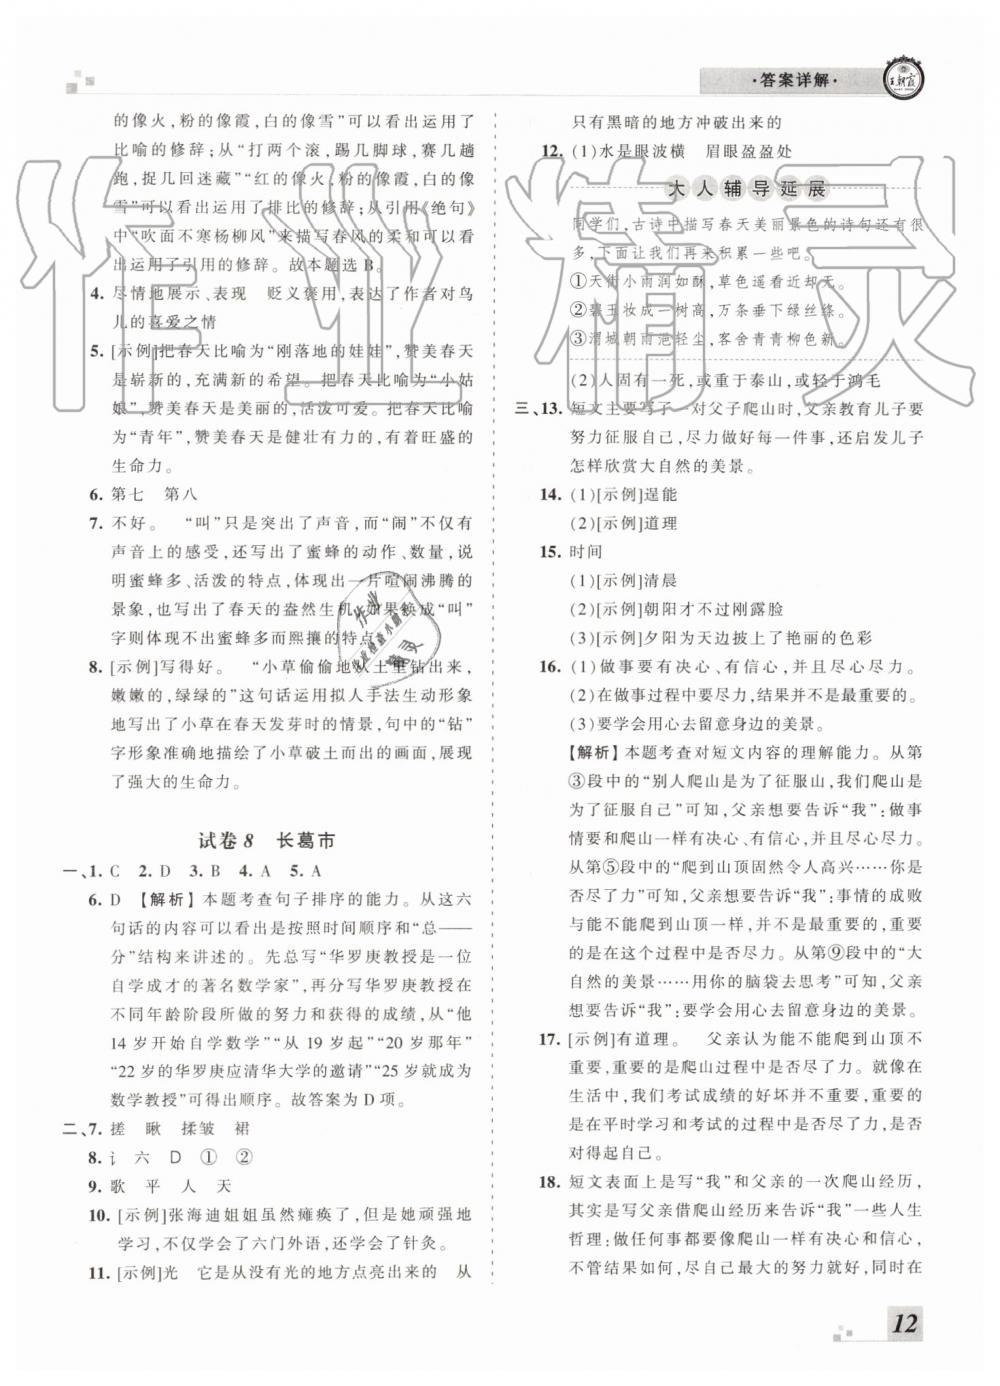 ·答案详解·
王朝霞
的像火,粉的像霞,白的像雪”可以看出运用了
比喻的修辞;从“打两个滚,踢几脚球,赛几趟
跑,捉几回迷藏”“红的像火,粉的像霞,白的像
雪”可以看出运用了排比的修辞;从引用《绝句》
中“吹面不寒杨柳风”来描写春风的柔和可以看
出运用了引用的修辞。故本题选B。
4. 尽情地展示、表现 贬义褒用,表达了作者对鸟
儿的喜爱之情
5. [示例]把春天比喻为“刚落地的娃娃”,赞美春天
是崭新的,充满新的希望。把春天比喻为“小姑
娘”,赞美春天是美丽的,活泼的。把春天比喻
为“青年”,赞美春天是健壮有力的,有着旺盛的
生命力。
6. 第七 第八
7. 不好。 “叫”只是突出了声音,而“闹”不仅有
声音上的感受,还写出了蜜蜂的动作、数量,说
明蜜蜂多、活泼的特点,体现出一片喧闹沸腾的
景象,也写出了春天的盎然生机,如果换成“叫”
字则体现不出蜜蜂多而熙攘的特点。
8. [示例]写得好。 “小草偷偷地从土里钻出来,
嫩嫩的,绿绿的”这句话运用拟人手法生动形象
地写出了小草在春天发芽时的情景,句中的“钻”
字形象准确地描绘了小草破土而出的画面,展现
了强大的生命力。
试卷8 长葛市
一、1. C 2. D 3. B 4. A 5. A
6. D 【解析】本题考查句子排序的能力。从这六
句话的内容可以看出是按照时间顺序和“总——
分”结构来讲述的。先总写“华罗庚教授是一位
自学成才的著名数学家”,再分写华罗庚教授在
不同年龄阶段所做的努力和获得的成绩,从“他
14岁开始自学数学”“从19岁起”“20岁那年”
“22岁的华罗庚应清华大学的邀请”“25岁就成为
数学教授”可得出顺序。故答案为D项。
二、7. 搓 瞅 揉皱 裙
8. 讠 六 D ① ②
9. 歌 平 人 天
10. [示例]张海迪姐姐虽然瘫痪了,但是她顽强地
学习,不仅学会了六门外语,还学会了针灸。
11. [示例]光 它是从没有光的地方点亮出来的 从
只有黑暗的地方冲破出来的
12. (1)水是眼波横 眉眼盈盈处
大人辅导延展
同学们,古诗中描写春天美丽景色的诗句还有很
多,下面让我们再来积累一些吧。
①天街小雨润如酥,草色遥看近却无。
②碧玉妆成一树高,万条垂下绿丝绦。
③渭城朝雨浥轻尘,客舍青青柳色新。
(2)人固有一死,或重于泰山,或轻于鸿毛
三、13. 短文主要写了一对父子爬山时,父亲教育儿子要
努力征服自己,尽力做好每一件事,还启发儿子
怎样欣赏大自然的美景。
14. (1)[示例]逞能
(2)[示例]道理
15. 时间
(1)[示例]清晨
(2)[示例]朝阳才不过刚露脸
(3)[示例]夕阳为天边披上了艳丽的色彩
16. (1)做事要有决心、有信心,并且尽心尽力。
(2)在做事过程中要尽力,结果并不是最重要的。
(3)要学会用心去留意身边的美景。
【解析】本题考查对短文内容的理解能力。从第
③段中的“别人爬山是为了征服山,我们爬山是
为了征服自己”可知,父亲想要告诉“我”:做事
情要和爬山一样有决心、有信心,并且尽心尽力。
从第⑤段中的“爬到山顶固然令人高兴……你是
否尽了力”可知,父亲想要告诉“我”:事情的成败
与能不能爬到山顶一样,并不是最重要的,重要
的是在这个过程中是否尽力。从第⑨段中的“大
自然的美景……用你的脑袋去思考”可知,父亲
想要告诉“我”:要学会用心去留意身边的美景。
17. [示例]有道理。 父亲认为能不能爬到山顶不
重要,重要的是爬山过程中是否尽力。就像在
生活中,我们考试成绩的好坏并不重要,重要的
是在平时学习和考试的过程中,我们是否尽力、
是否征服了自己。
18. 短文表面上是写“我”和父亲的一次爬山经历,
其实是写父亲借爬山经历来告诉“我”一些人生
哲理:做任何事都要像爬山一样有决心和信心,
不管结果如何,尽自己最大的努力就好,同时在
12
作业精灵